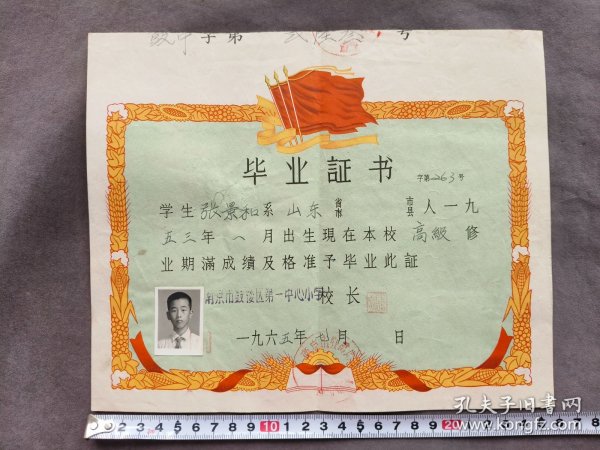 毕业証书
字第263号
学生张景和系山东省市 市县人一九
五三年八月出生現在本校高級修
业期滿成績及格准予毕业此証
南京市鼓楼区第一中心小学校长
一九六五年七月 日
2 3 4 5 6 7 8 9 10 1 2 3 4 5 6 7 8 9 20 1 2 3 4 5 6 7 8
孔夫子旧书网
www.kongfz.com